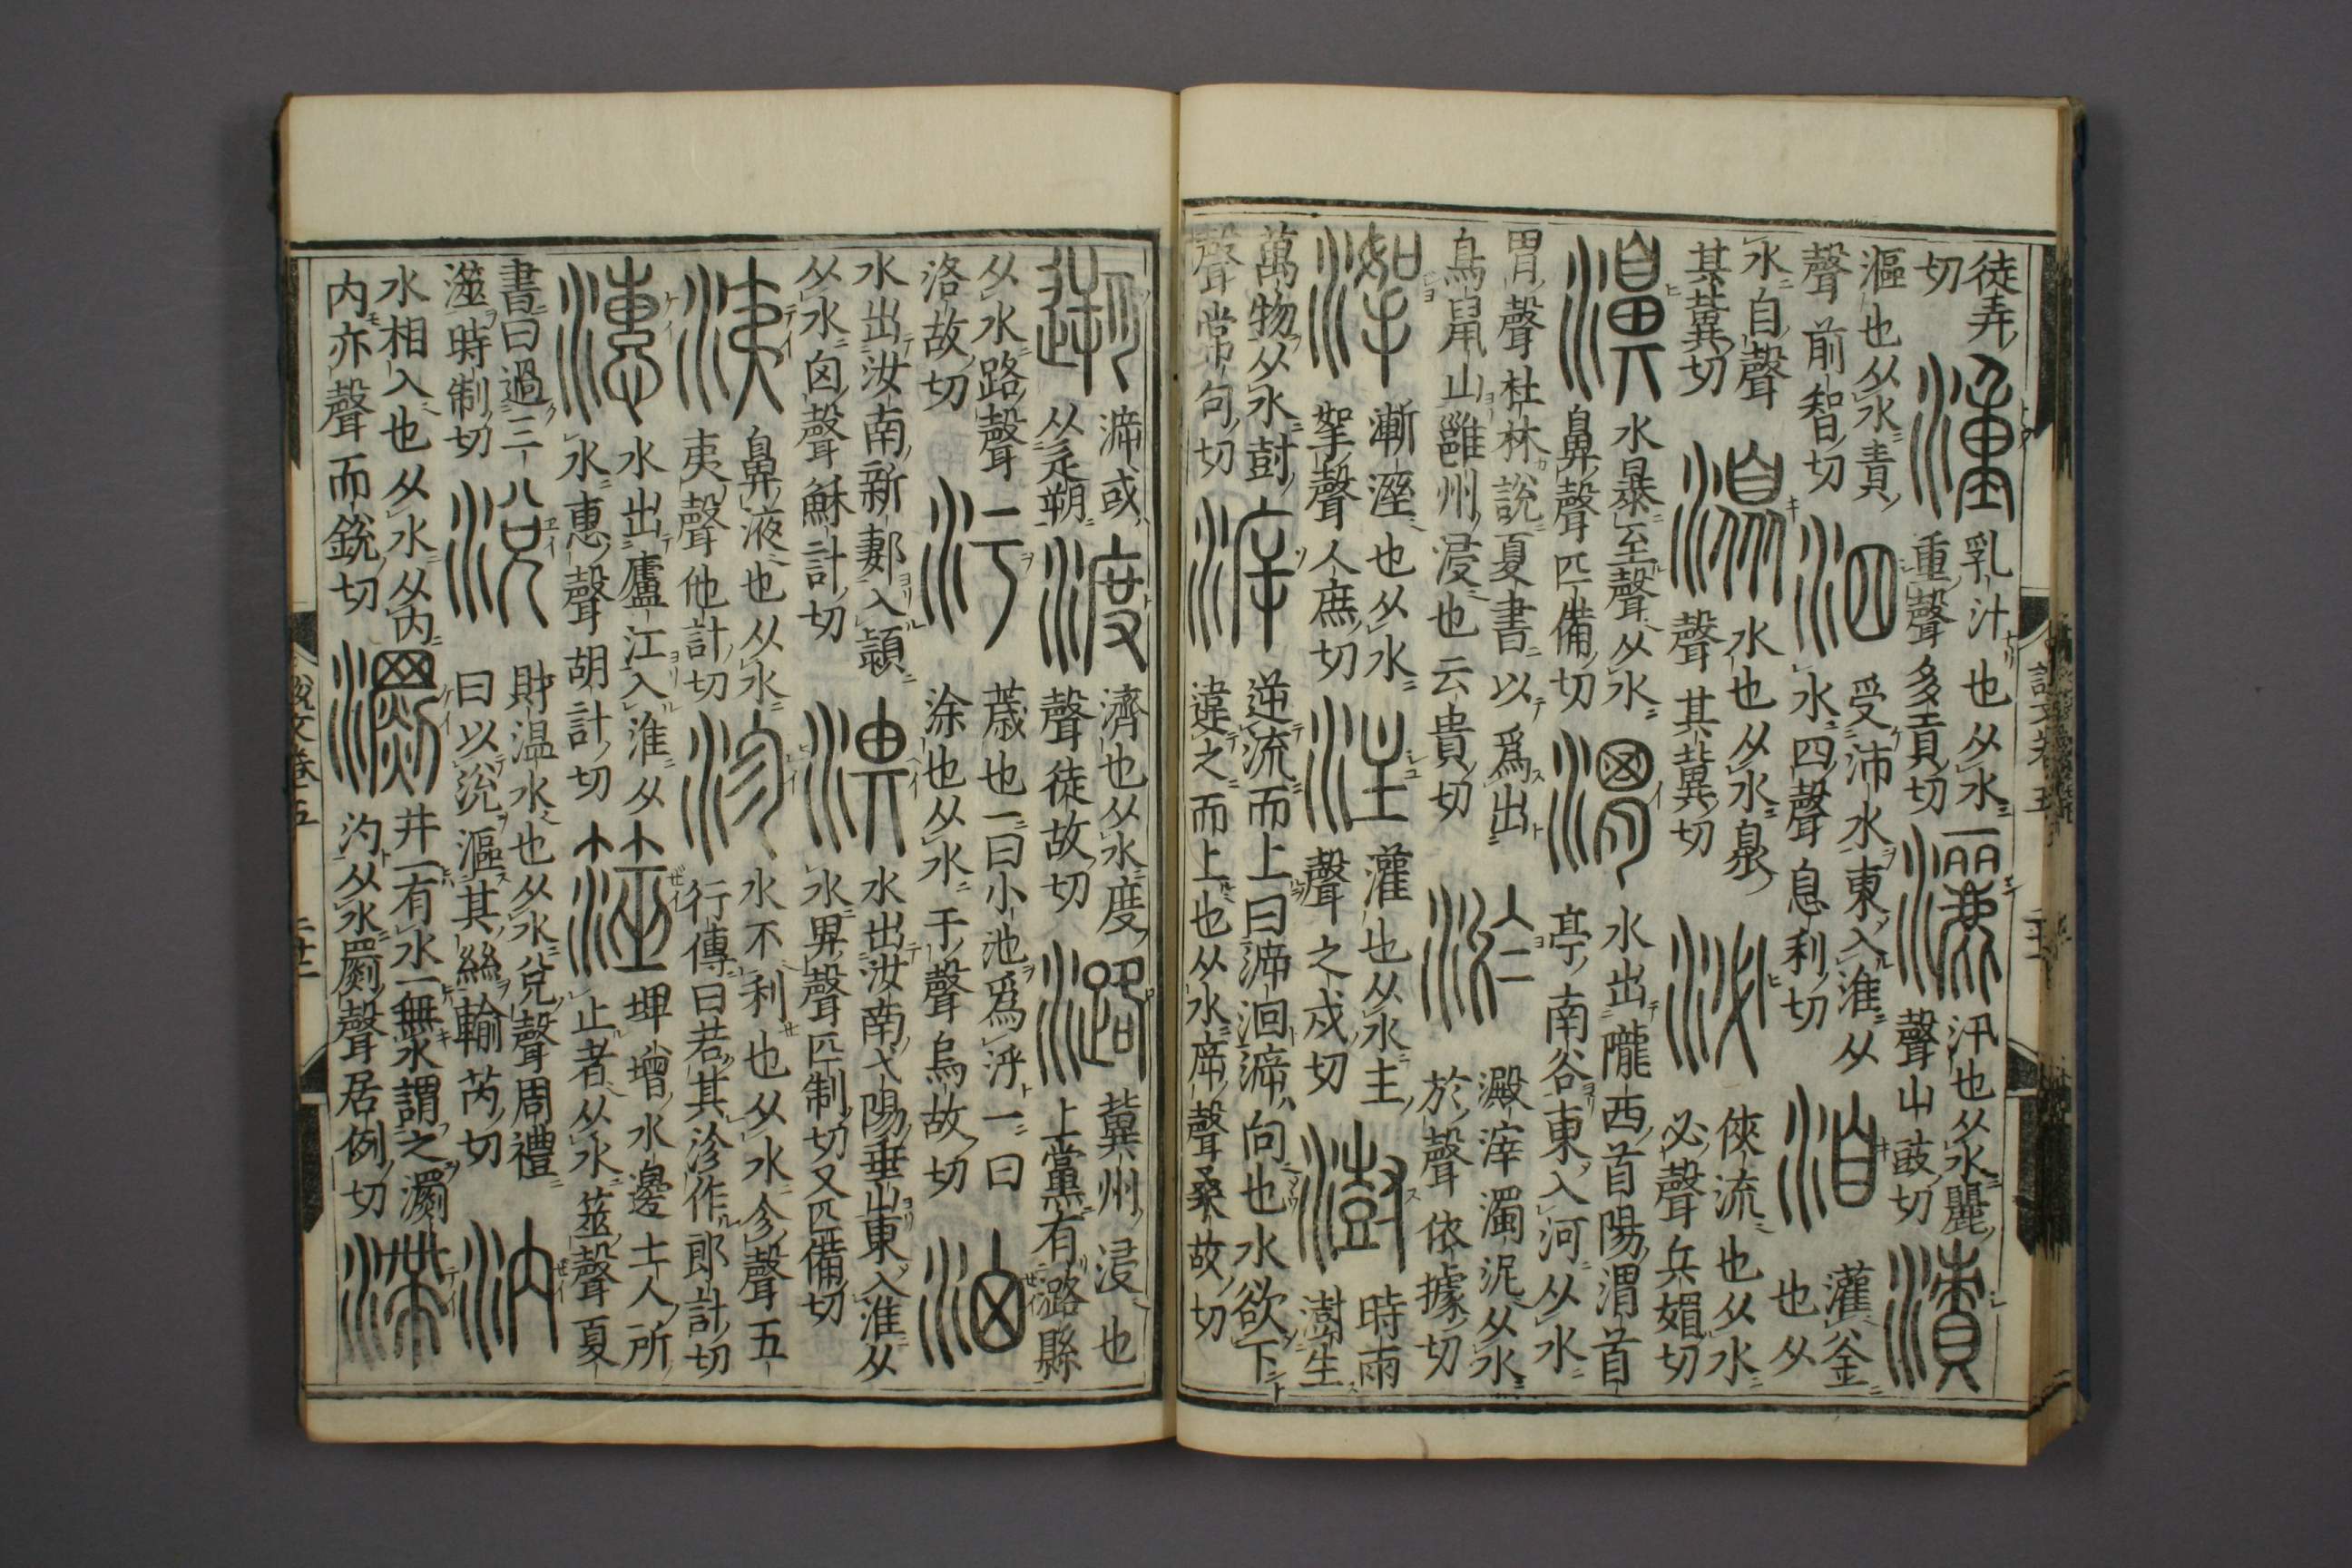 徒弄
切
湩
乳汁也从水
重聲多貢切
灑
汛也从水麗
聲山豉切
漬
漚也从水責
聲前智切
泗
受沛水東入淮从
水四聲息利切
洎
灌釜
也从
水自聲
其冀切
水也从水臮
聲其冀切
泌
俠流也从水
必聲兵媚切
濞
水暴至聲从水
鼻聲匹備切
渭
水出隴西首陽渭首
亭南谷東入河从水
胃聲杜林說夏書以爲出
鳥鼠山雝州浸也云貴切
淤
澱滓濁泥从水
於聲依據切
漸溼也从水
挐聲人庶切
注
灌也从水主
聲之戍切
澍
時雨
澍生
萬物从水尌
聲常句切
㴑
逆流而上曰㴑洄㴑向也水欲下
違之而上也从水㡿聲桑故切
遡
㴑或
从辵朔
渡
濟也从水度
聲徒故切
潞
冀州浸也
上黨有潞縣
从水路聲
洛故切
汙
薉也一曰小池爲汙一曰
涂也从水于聲烏故切
水出汝南新郪入潁
从水囟聲穌計切
淠
水出汝南弋陽垂山東入淮从
水畀聲匹制切又匹備切
洟
鼻液也从水
夷聲他計切
沴
水不利也从水㐱聲五
行傳曰若其沴作郎計切
潓
水出廬江入淮从
水惠聲胡計切
澨
埤增水邊土人所
止者从水筮聲夏
書曰過三
澨時制切
涗
財温水也从水兌聲周禮
曰以涗漚其絲輸芮切
汭
水相入也从水从内
内亦聲而銳切
瀱
井一有水一無水謂之瀱
汋从水罽聲居例切
滯
說文卷五